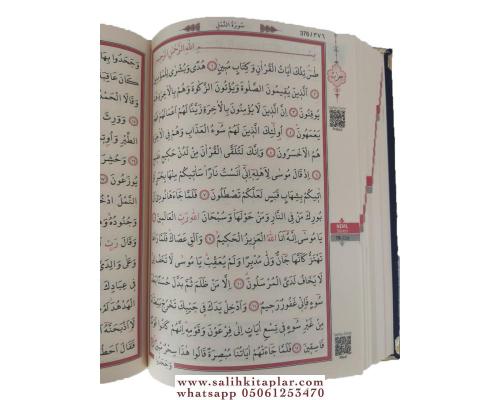 سُورَةُ النَّمْلِ
376/٣٧٦
بِسْمِ اللّٰهِ الرَّحْمٰنِ الرَّحِيمِ
طٰسٓ تِلْكَ اٰيَاتُ الْقُرْاٰنِ وَكِتَابٍ مُبِينٍ ﴿١﴾ هُدًى وَبُشْرٰى
اَلَّذِينَ يُقِيمُونَ الصَّلٰوةَ وَيُؤْتُونَ الزَّكٰوةَ وَهُمْ بِالْاٰخِرَةِ
يُوقِنُونَ ﴿٣﴾ اِنَّ الَّذِينَ لَا يُؤْمِنُونَ بِالْاٰخِرَةِ زَيَّنَّا لَهُمْ اَعْمَالَهُمْ
يَعْمَهُونَ ﴿٤﴾ اُولٰٓئِكَ الَّذِينَ لَهُمْ سُوٓءُ الْعَذَابِ وَهُمْ فِي الْاٰخِرَةِ
هُمُ الْاَخْسَرُونَ ﴿٥﴾ وَاِنَّكَ لَتُلَقَّى الْقُرْاٰنَ مِنْ لَدُنْ حَكِيمٍ
اِذْ قَالَ مُوسٰى لِاَهْلِهٖٓ اِنّٖٓي اٰنَسْتُ نَارًا سَاٰتِيكُمْ مِنْهَا
اٰتِيكُمْ بِشِهَابٍ قَبَسٍ لَعَلَّكُمْ تَصْطَلُونَ ﴿٧﴾ فَلَمَّا جَٓاءَهَا نُودِيَ
بُورِكَ مَنْ فِي النَّارِ وَمَنْ حَوْلَهَا وَسُبْحَانَ اللّٰهِ رَبِّ
يَا مُوسٰٓى اِنَّهُٓ اَنَا اللّٰهُ الْعَزِيزُ الْحَكِيمُ ﴿٩﴾ وَاَلْقِ عَصَاكَ
تَهْتَزُّ كَاَنَّهَا جَٓانٌّ وَلّٰى مُدْبِرًا وَلَمْ يُعَقِّبْ يَا مُوسٰى لَا تَخَفْ
لَا يَخَافُ لَدَيَّ الْمُرْسَلُونَ ﴿١٠﴾ اِلَّا مَنْ ظَلَمَ ثُمَّ بَدَّلَ حُسْنًا
سُوٓءٍ فَاِنّٖي غَفُورٌ رَحِيمٌ ﴿١١﴾ وَاَدْخِلْ يَدَكَ فِي جَيْبِكَ تَخْرُجْ
مِنْ غَيْرِ سُوٓءٍ فِي تِسْعِ اٰيَاتٍ اِلٰى فِرْعَوْنَ وَقَوْمِهٖ اِنَّهُمْ كَانُوا
فَاسِقِينَ ﴿١٢﴾ فَلَمَّا جَٓاءَتْهُمْ اٰيَاتُنَا مُبْصِرَةً قَالُوا هٰذَا سِحْرٌ
وَجَحَدُوا بِهَا
قَالَا الْحَمْدُ
وَوَرِثَ
وَحُشِرَ
يُوزَعُونَ
النَّمْلُ
وَجُنُودُهُ
وَقَالَ رَبِّ
وَعَلٰى
فِي عِبَادِكَ
الْهُدْهُدَ
فَقَالَ
www.salihkitaplar.com
whatsapp 05061253470